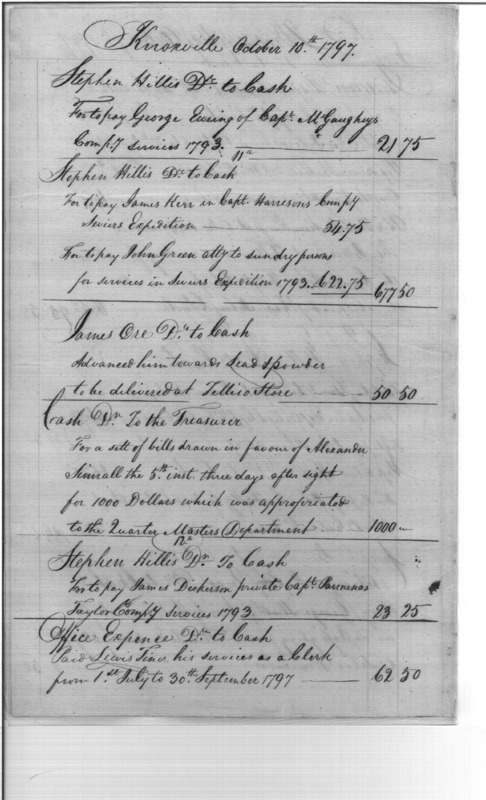 Knoxville October 10.th 1797.
Stephen Hillis Dr. to Cash
For to pay George Ewing of Capt. McGaugheys
Comp.y Services 1793. 21 75
11th
Stephen Hillis Dr. to Cash
For to pay James Kerr in Capt. Harresons Comp.y
Seviers Expedition 54.75
For to pay John Green atty to sundry persons
for services in Seviers Expedition 1793. 622.75 677 50
James Ore Dr. to Cash
Advanced him towards Lead & powder
to be delivered at Tellico Store 50 50
Cash Dr. To the Treasurer
For a sett of bills drawn in favour of Alexander
the 5.th inst. three days after sight
for 1000 Dollars which was appropriated
to the Quarter Masters Department 1000 —
12th
Stephen Hillis Dr. To Cash
For to pay James Dickerson private Capt. Parmenas
Taylor Comp.y Services 1793 23 25
Office Expence Dr. to Cash
Paid Lewis his services as a Clerk
from 1.st July to 30.th September 1797 62 50